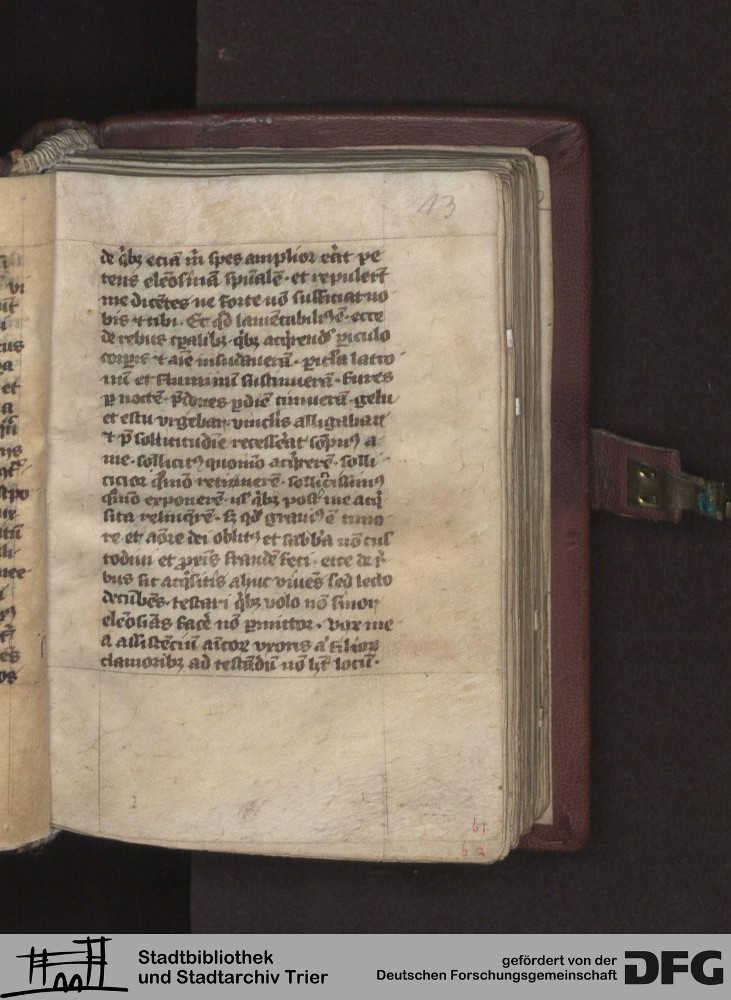 13
de qbꝫ eciā m̄ spes amplior eāt pe
tens eleōsinā spūalē · et repulert̄
me dicētes ne forte nō sufficiat no
bis ⁊ tibi · Et qd̄ lamētabiliꝰ ē · ecce
de rebus tꝑalibꝫ · qbꝫ acqrendꝭ ꝑiculo
corꝑis ⁊ aīe insudauerā · ꝑicla latro
nū et fluminū sustinuerā · fures
ꝑ noctē · p̄dones ꝑ diē timuerā · gelu
et estu vrgebar vinclis alligabar
⁊ p̄ sollicitudīe recesserāt sōpnꝰ a
me · sollicitꝰ quomō acqrerē · solli
citior qmō retinerē · sollicitissimꝰ
qmō exponerē · qbꝫ post me acq
sita relinqrē · sꝫ qd̄ grauiꝰ ē timo
re et aōre dei oblitꝰ et sabb'a nō cus
todiui et ꝓxīs fraudē feci · ecce de r̄
bus sic acqsitis adhuc viuēs sed lecto
decūbēs · testari qbꝫ volo nō sinor
eleōsīas facē nō ꝑmittor · vox me
a assistēciū aīcoꝝ vxoris a' filioꝝ
clamoribꝫ ad testādū nō hꝫ locū ·
61
6 2
Stadtbibliothek
und Stadtarchiv Trier
gefördert von der
Deutschen Forschungsgemeinschaft
DFG